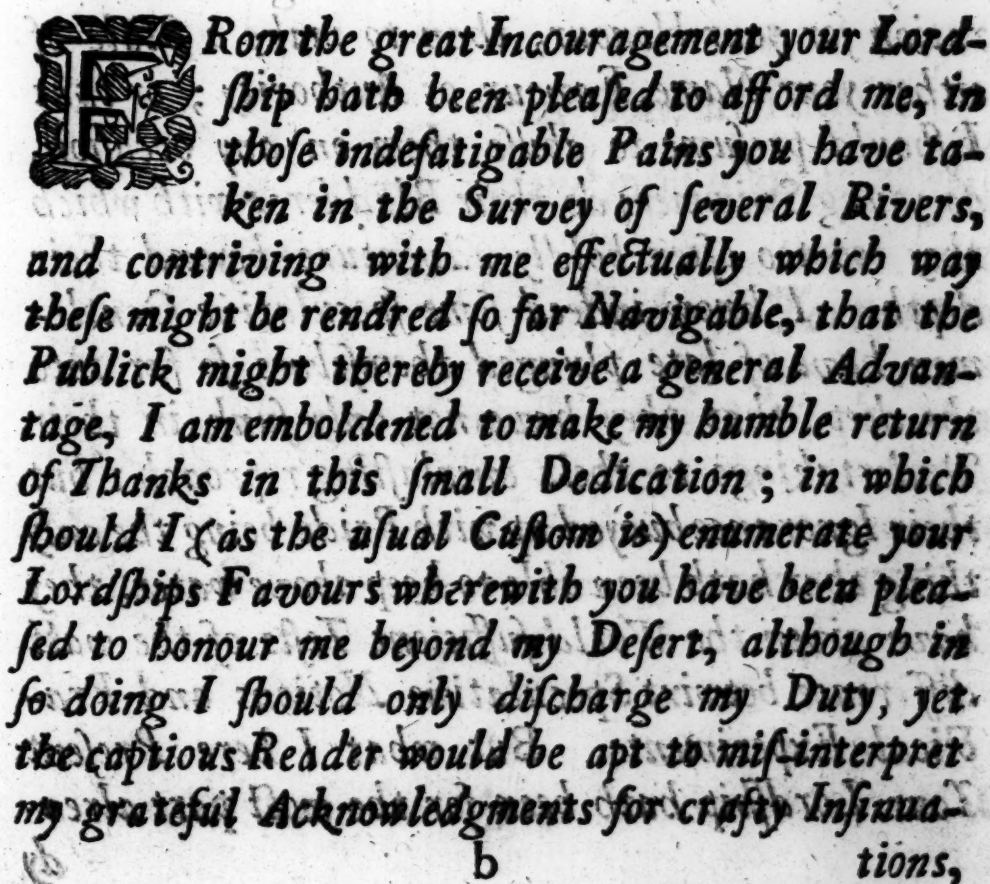 FRom the great Incouragement your Lord-
ſhip hath been pleaſed to afford me, in
thoſe indefatigable Pains you have ta-
ken in the Survey of ſeveral Rivers,
and contriving with me effectually which way
theſe might be rendred ſo far Navigable, that the
Publick might thereby receive a general Advan-
tage, I am emboldened to make my humble return
of Thanks in this ſmall Dedication; in which
ſhould I (as the uſual Cuſtom is) enumerate your
Lordſhips Favours wherewith you have been plea-
ſed to honour me beyond my Deſert, although in
ſo doing I ſhould only diſcharge my Duty, yet
the captious Reader would be apt to miſ-interpret
my grateful Acknowledgments for crafty Inſinua-
b tions,